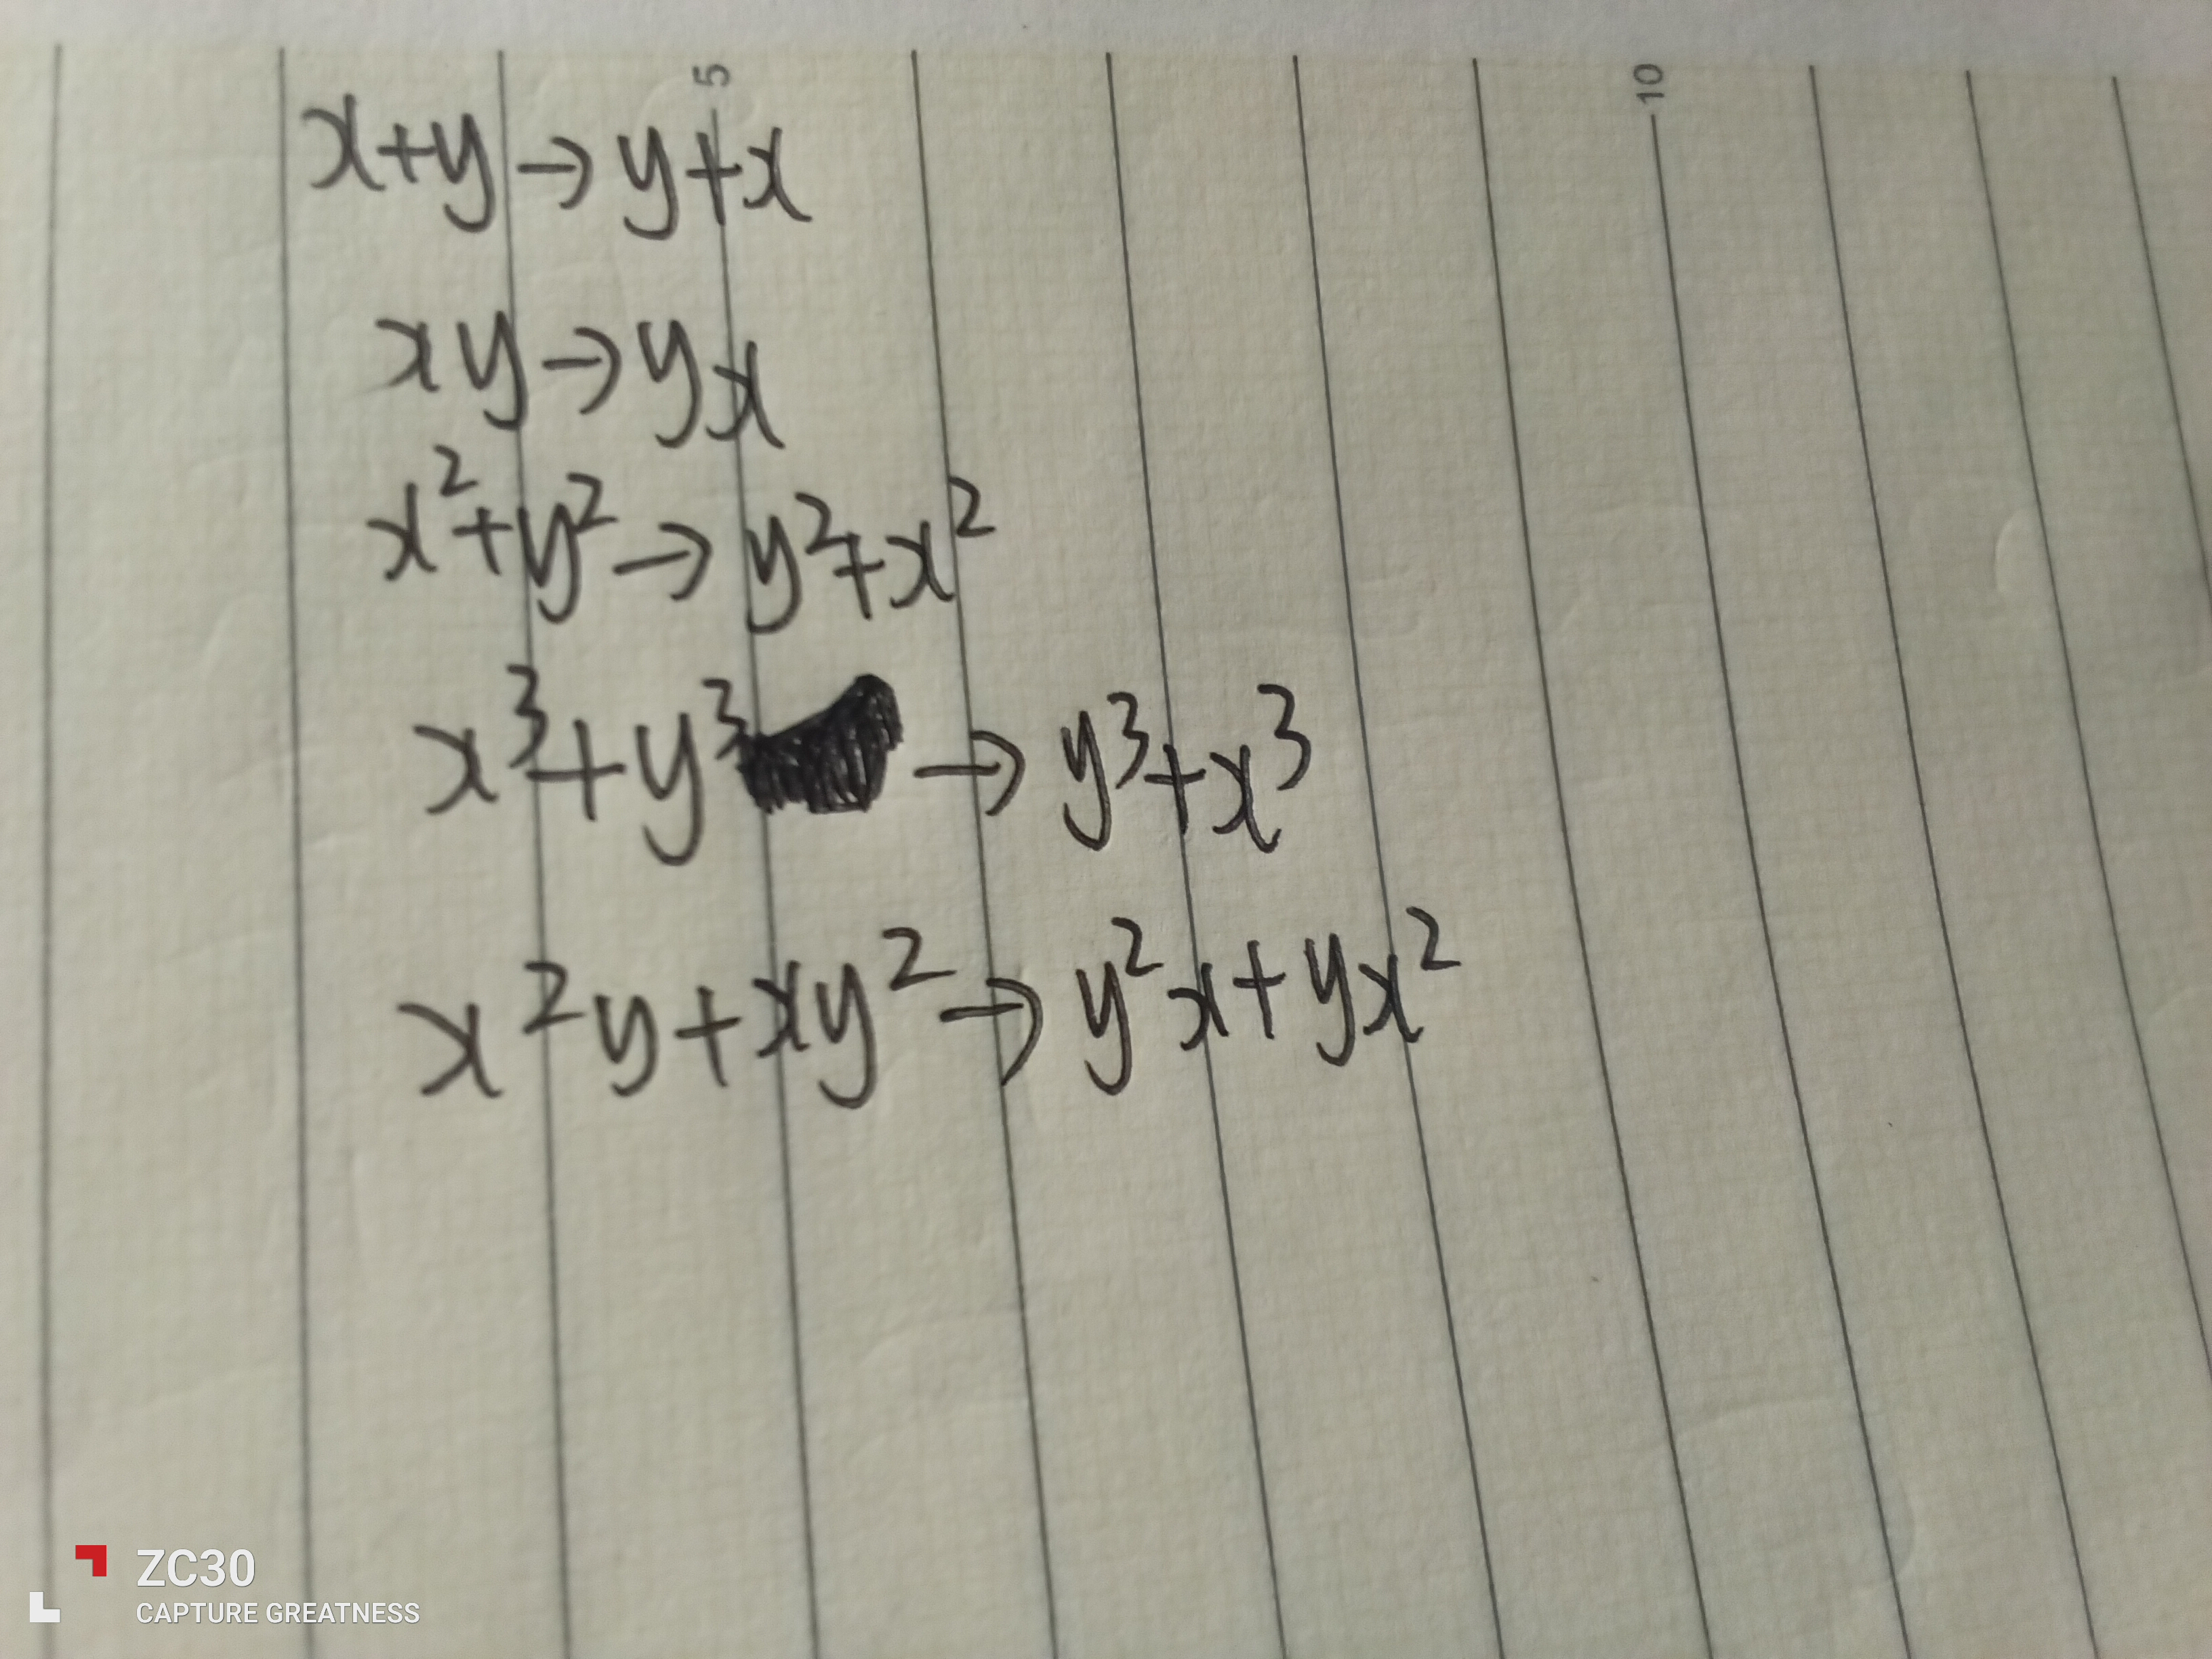 5
10
x+y→y+x
xy→yx
x²+y²→y²+x²
x³+y³→y³+x³
x²y+xy²→y²x+yx²
ZC30
CAPTURE GREATNESS